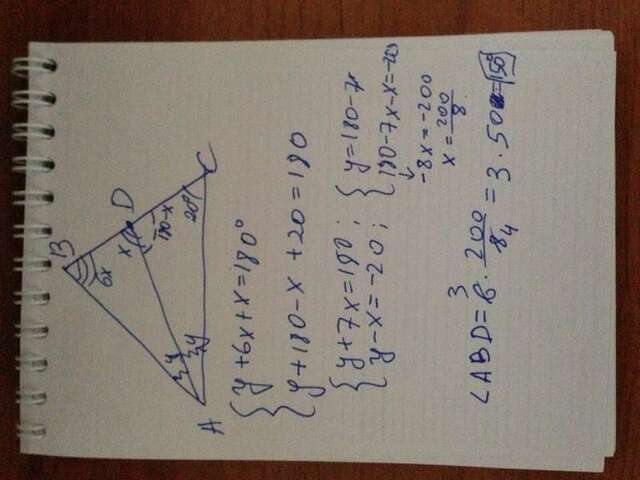 B
6x
D
x
180-x
C
20°
y
y
A
{ y+6x+x=180°
{ y+180-x+20=180
{ y+7x=180;
{ y-x=-20;
{ y=180-7x
{ 180-7x-x=-20
-8x=-200
x=200/8
∠ABD=6·200/8=3·50=150°